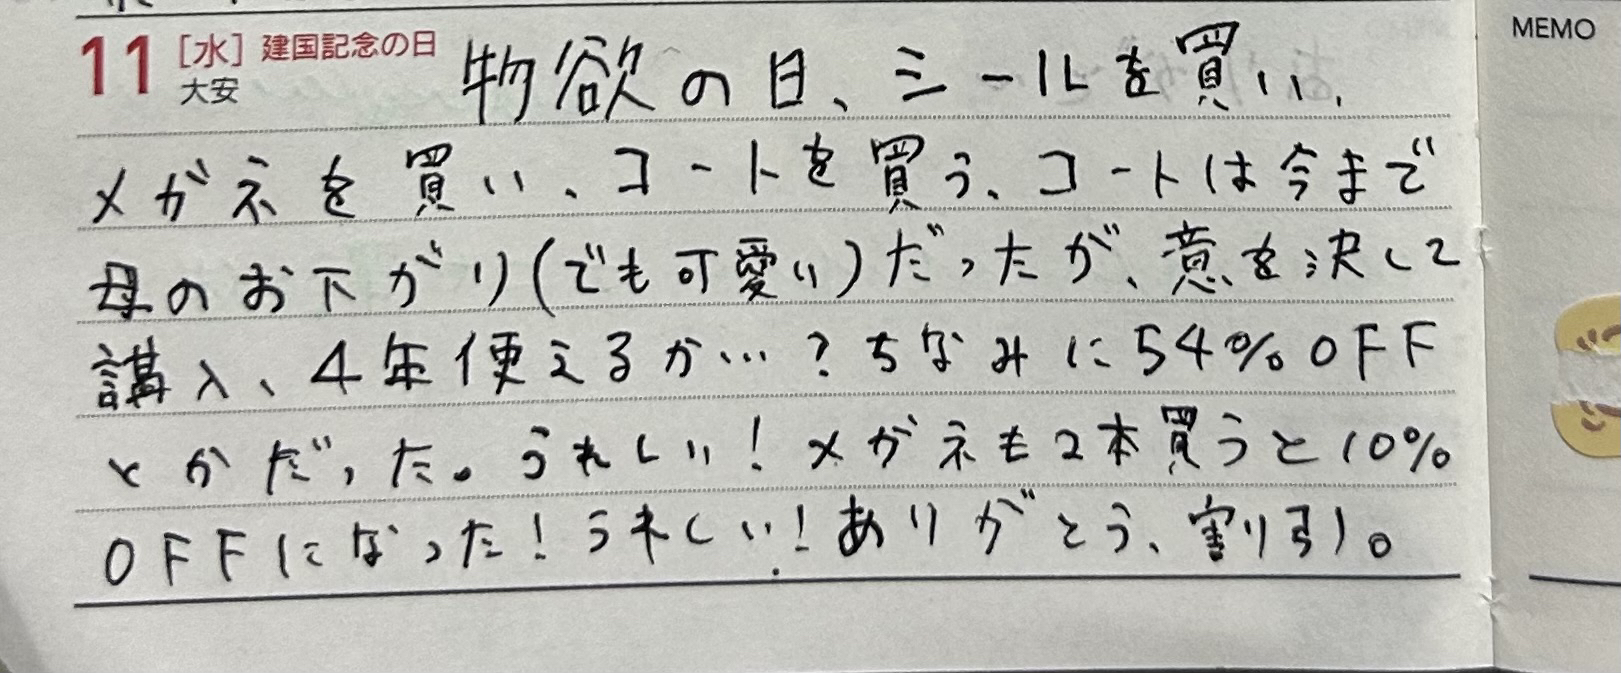 11 [水] 建国記念の日
大安
MEMO
物欲の日、シールを買い、
メガネを買い、コートを買う、コートは今まで
母のお下がり(でも可愛い)だったが、意を決して
講入、4年使えるか…?ちなみに54%OFF
とかだった。うれしい!メガネも2本買うと10%
OFFになった!うれしい!ありがとう、割り引。